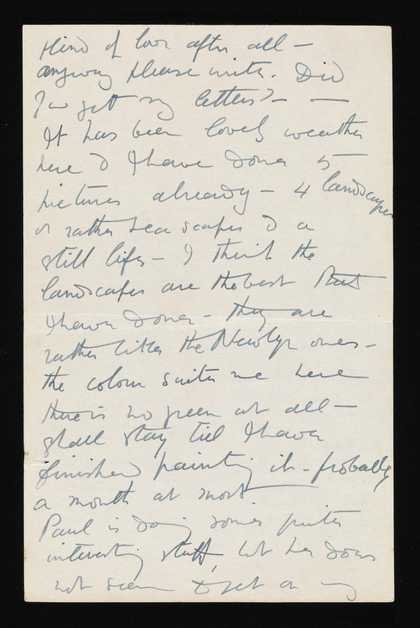 kind of love after all -
anyway please write. Did
you get my letters? - -
It has been lovely weather
here & I have done 5
pictures already - 4 landscapes
or rather sea scapes & a
still life - I think the
landscapes are the best that
I have done - they are
rather like the Newlyn ones -
the colour suites me here
there is no green at all -
shall stay till I have
finished painting it - probably
a month at most.
Paul is doing some quite
interesting stuff, but he does
not seem to get on